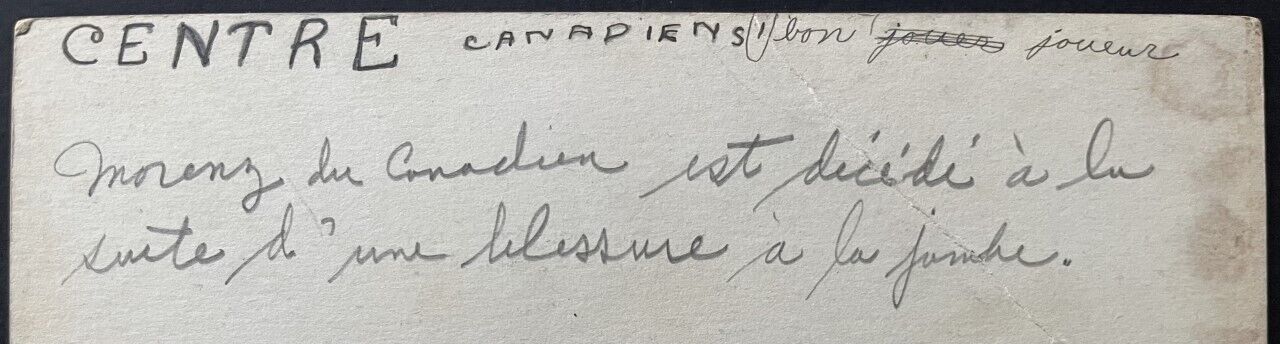 CENTRE CANADIENS (1) bon jouer joueur
Morenz du Canadien est décédé à la
suite d'une blessure à la jambe.